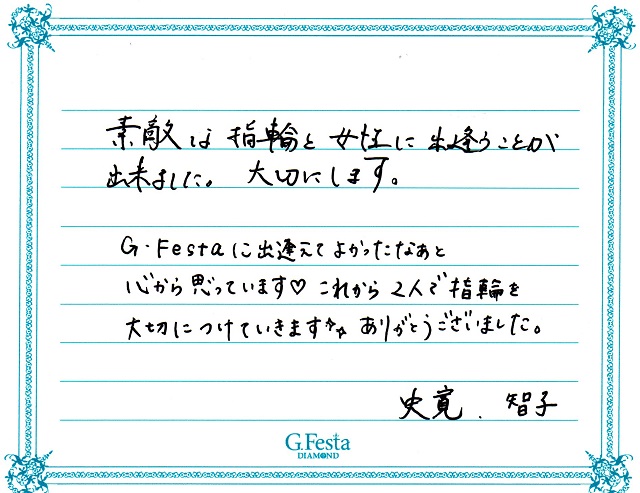 素敵な指輪と女性に出逢うことが
出来ました。大切にします。
G.Festaに出逢えてよかったなあと
心から思っています♡これから2人で指輪を
大切につけていきます☆☆ありがとうございました。
史寛．智子
G.Festa
DIAMOND